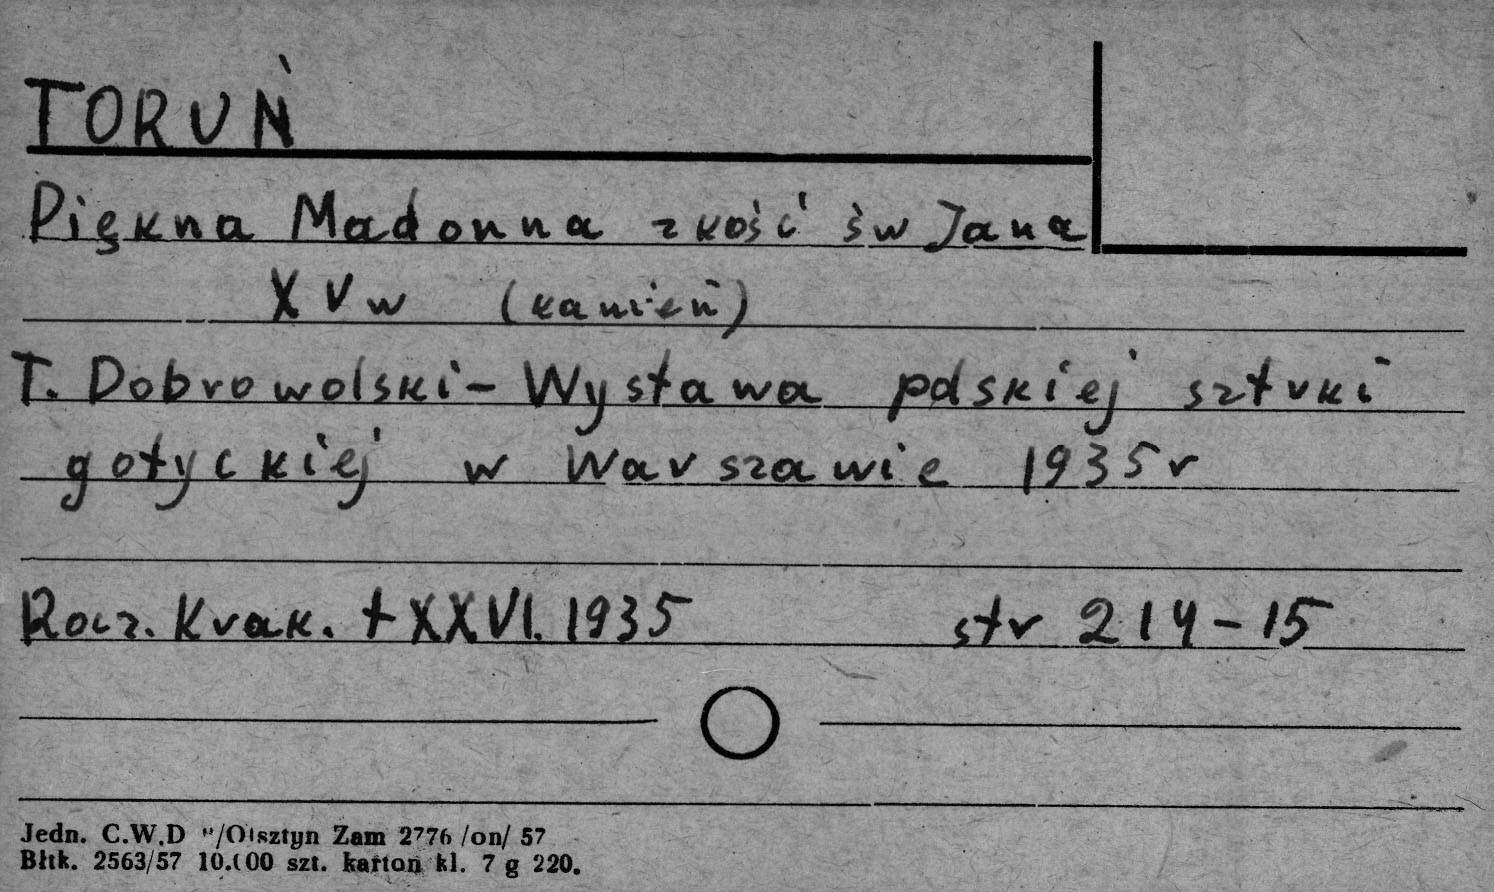 TORUŃ
Piękna Madonna z kość św Jana
XV w (kamień)
T. Dobrowolski - Wystawa polskiej sztuki
gotyckiej w Warszawie 1935 r
Rocz. Krak. t XXVI. 1935 str 214-15
Jedn. C.W.D "/Olsztyn Zam 2776 /on/ 57
Błtk. 2563/57 10.000 szt. karton kl. 7 g 220.